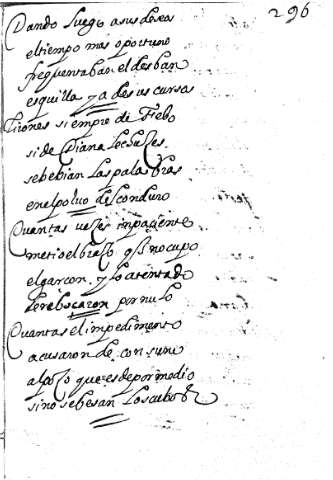 296
Dando luego a sus deseos
el tiempo mas oportuno
frequentaban el desban
esquilla y a de sus cursos
Tirones siempre de Febo
si de Diana lechuzes
se bebian las palabras
en el polvo del conduto
Quantas vezes impaziente
metio el brazo q̃ no cupo
el garcon, y lo atentado
le rebocaron por nulo
Quantas el impedimento
acusaron de consuno
al pozo que es de por medio
si no se besan los cubos